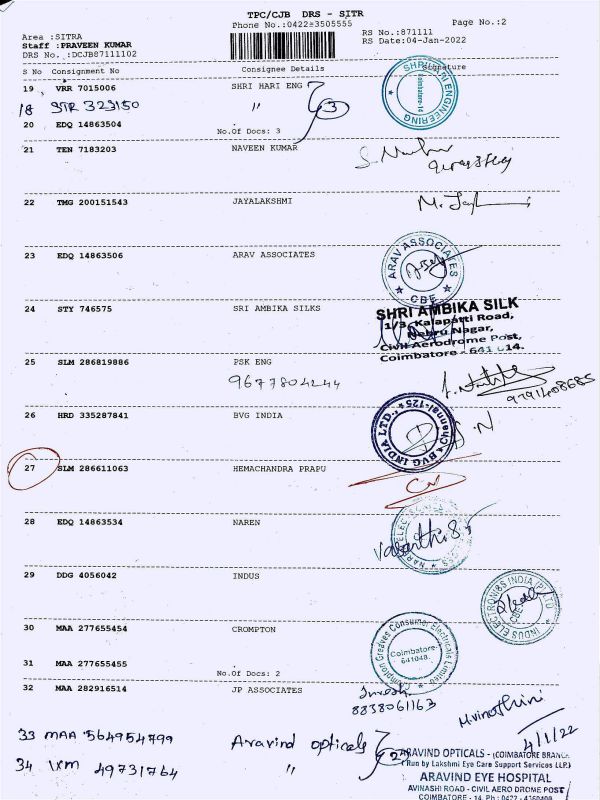 TPC/CJB DRS - SITR
Phone No.:0422-3505555
Page No.:2
Area :SITRA
RS No.:871111
Staff :PRAVEEN KUMAR
RS Date:04-Jan-2022
DRS No. :DCJB87111102
S No Consignment No Consignee Details Signature
19 VRR 7015006 SHRI HARI ENG
SHRI HARI ENGINEERING
18 STR 323150 " 3
20 EDQ 14863504
No.Of Docs: 3
21 TEN 7183203 NAVEEN KUMAR
22 TMG 200151543 JAYALAKSHMI
23 EDQ 14863506 ARAV ASSOCIATES
ARAV ASSOCIATES CBE
24 STY 746575 SRI AMBIKA SILKS
SHRI AMBIKA SILK
1/3, Kalapatti Road,
Nehru Nagar,
Civil Aerodrome Post,
Coimbatore - 641 014.
25 SLM 286819886 PSK ENG
9677804244
9791408685
26 HRD 335287841 BVG INDIA
BVG INDIA LTD. Chennai-125
27 SLM 286611063 HEMACHANDRA PRAPU
28 EDQ 14863534 NAREN
Vasanthi
29 DDG 4056042 INDUS
INDUS ELECTRONICS INDIA (P) LTD CBE
30 MAA 277655454 CROMPTON
Crompton Greaves Consumer Electricals Limited
Coimbatore-
641048.
31 MAA 277655455
No.Of Docs: 2
32 MAA 282916514 JP ASSOCIATES
Suresh
8838061163
M.vinothini
4/1/22
33 MAA 564954799 Aravind opticals
34 IXM 49731764 " 2
ARAVIND OPTICALS - (COIMBATORE BRANCH)
(Run by Lakshmi Eye Care Support Services LLP.)
ARAVIND EYE HOSPITAL
AVINASHI ROAD - CIVIL AERO DROME POST
COIMBATORE - 14. Ph : 0422 - 4360408